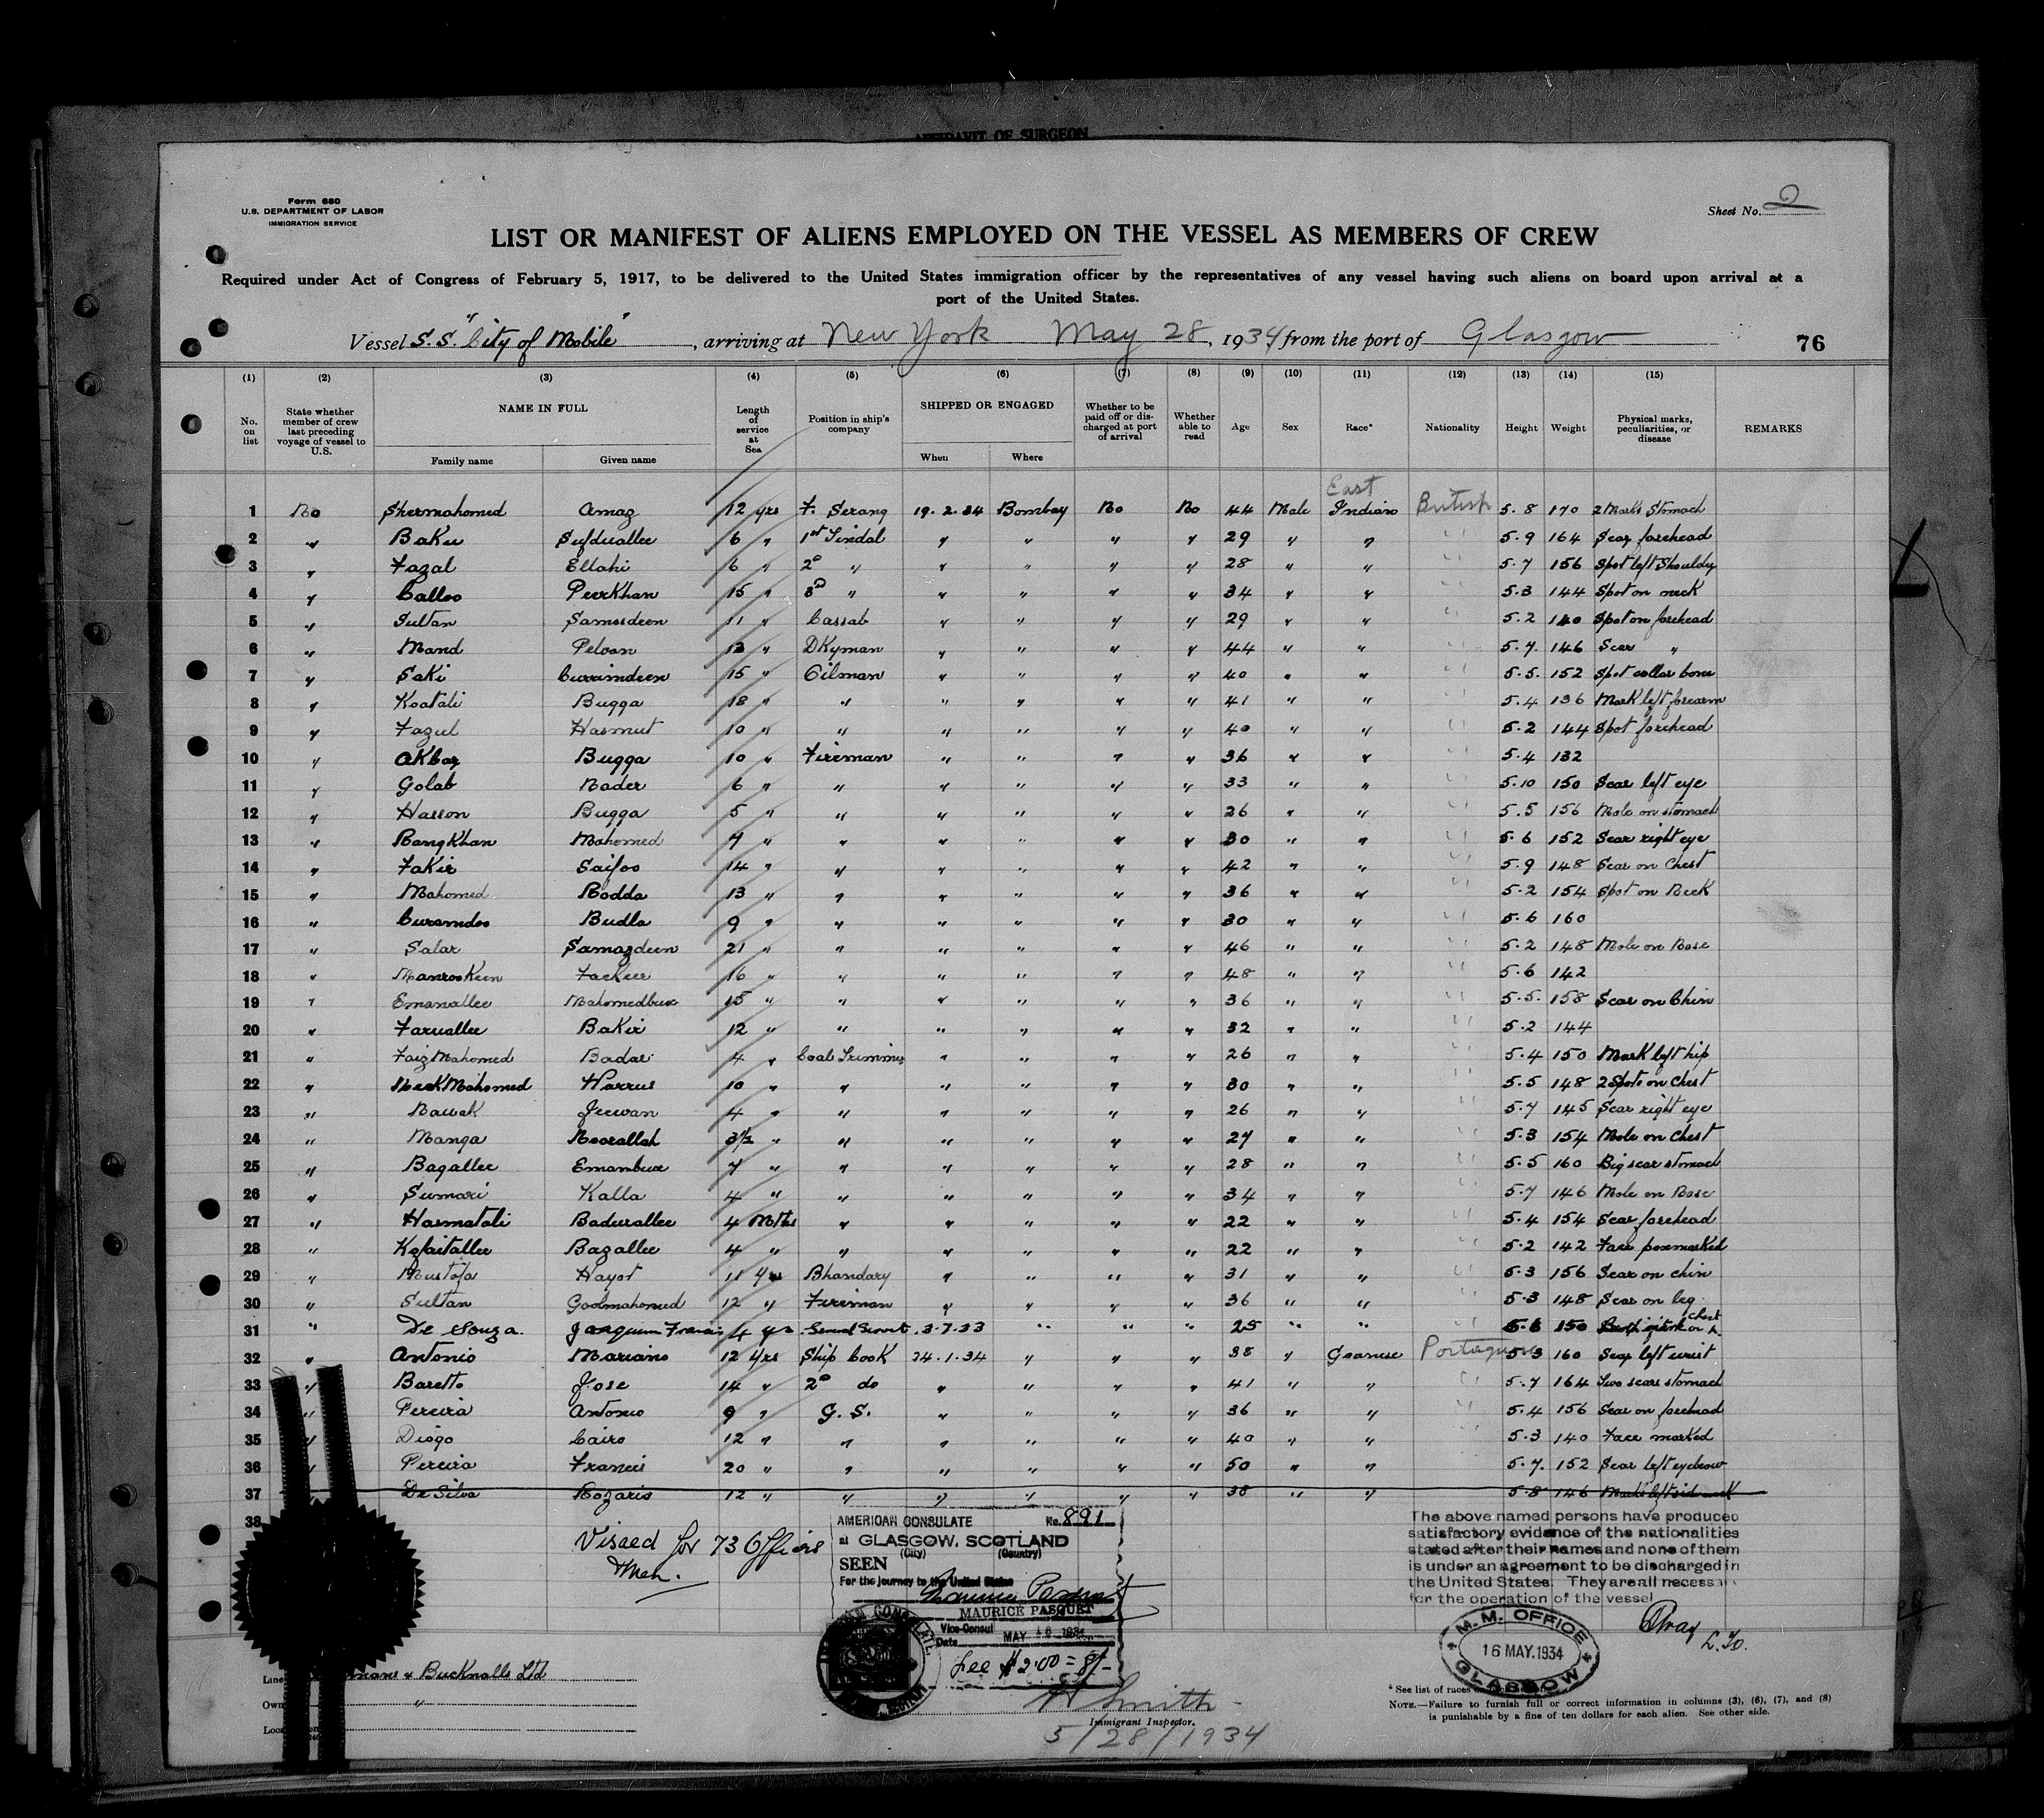 AFFIDAVIT OF SURGEON
Form 680
U.S. DEPARTMENT OF LABOR
IMMIGRATION SERVICE
Sheet No. 2
LIST OR MANIFEST OF ALIENS EMPLOYED ON THE VESSEL AS MEMBERS OF CREW
Required under Act of Congress of February 5, 1917, to be delivered to the United States immigration officer by the representatives of any vessel having such aliens on board upon arrival at a
port of the United States.
Vessel S.S. "City of Mobile", arriving at New York May 28, 1934 from the port of Glasgow
76
(1) (2) (3) (4) (5) (6) (7) (8) (9) (10) (11) (12) (13) (14) (15)
No. on list State whether member of crew last preceding voyage of vessel to U.S. NAME IN FULL Family name Given name Length of service at Sea Position in ship's company SHIPPED OR ENGAGED When Where Whether to be paid off or discharged at port of arrival Whether able to read Age Sex Race* Nationality Height Weight Physical marks, peculiarities, or disease REMARKS
1 No Shermahomed Amaz 12 yrs F. Serang 19.2.34 Bombay No No 44 Male East Indians British 5.8 170 2 Marks Stomach
2 " Baku 6 " 1st Tindal " " " " 29 " " " 5.9 164 Scar forehead
3 " Fazal Ellahi 6 " 2° " " " " " 28 " " " 5.7 156 Spot left Shouldy
4 " Calloo PeerKhan 15 " 3° " " " " " 34 " " " 5.3 144 Spot on neck
5 " Sultan Samsdeen 11 " Cassab " " " " 29 " " " 5.2 140 Spot on forehead
6 " Mand Peloan 13 " DKyman " " " " 44 " " 5.7 146 Scar "
7 " Saki Currimdeen 15 " Oilman " " " " 40 " " " 5.5. 152 Spot collar bone
8 " Koatali Bugga 18 " " " " " " 41 " " " 5.4 136 Mark left forearm
9 " Fazul Hasmut 10 " " " " " " 40 " " " 5.2 144 Spot forehead
10 " Akbar Bugga 10 " Fireman " " " " 36 " " " 5.4 132
11 " Golab Nader 6 " " " " " " 33 " " 5.10 150 Scar left eye
12 " Hasson Bugga 5 " " " " " " 26 " " " 5.5 156 Mole on stomach
13 " RangKhan Mahomed 7 " " " " " " 30 " " " 5.6 152 Scar right eye
14 " Fakir Saifoo 14 " " " " " " 42 " " " 5.9 148 Scar on Chest
15 " Mahomed Rodda 13 " " " " " " 36 " " " 5.2 154 Spot on Neck
16 " Curamdoo Budla 9 " " " " " " 30 " " " 5.6 160
17 " Salar Samazdeen 21 " " " " " " 46 " " " 5.2 148 Mole on Nose
18 " Manrookeen Fackeer 16 " " " " " " 48 " " " 5.6 142
19 " Emanallee Mahomedbux 15 " " " " " " 36 " " " 5.5. 158 Scar on Chin
20 " Faruallee Bakir 12 " " " " " " 32 " " " 5.2 144
21 " FaizMahomed Badar 4 " Coal Trimmer " " " " 26 " " " 5.4 150 Mark left hip
22 " NeekMahomed Warrus 10 " " " " " " 30 " " " 5.5 148 2 Spots on Chest
23 " Nawak Jeewan 4 " " " " " " 26 " " " 5.7 145 Scar right eye
24 " Manga Noorallah 3½ " " " " " " 27 " " " 5.3 154 Mole on Chest
25 " Bagallee Emambux 7 " " " " " " 28 " " " 5.5 160 Big scar stomach
26 " Sumari Kalla 4 " " " " " " 34 " " " 5.7 146 Mole on Nose
27 " Hasmatali Badurallee 4 Mths " " " " " 22 " " " 5.4 154 Scar forehead
28 " Kafaitallee Bazallee 4 " " " " " " 22 " " " 5.2 142 Face poxmarked
29 " Mustofa Hayot 11 yrs Bhandary " " " " 31 " " " 5.3 156 Scar on chin
30 " Sultan Goolmahomed 12 " Fireman " " " " 36 " " " 5.3 148 Scar on leg
31 " De Souza. Joaquim Francis 4 yrs General Servt. 3.7.33 " " " 25 " " " 5.6 150 Birth mark on chest
32 " Antonio Mariano 12 yrs Ship Cook 24.1.34 " " " 38 " Goanese Portuguese 5.3 160 Scar left wrist
33 " Baretto Jose 14 " 2° do " " " " 41 " " " 5.7 164 Two scars stomach
34 " Pereira Antonio 9 " G.S. " " " " 36 " " " 5.4 156 Scar on forehead
35 " Diogo Cairo 12 " " " " " " 40 " " " 5.3 140 Face marked
36 " Pereira Francis 20 " " " " " " 50 " " 5.7. 152 Scar left eyebrow
37 De Silva Rozario 12 " " " " " " 38 " " 5.8 146 Marks left side neck
38
Visaed for 73 Officers
Men.
AMERICAN CONSULATE No. 891
at GLASGOW, SCOTLAND
(City) (Country)
SEEN
For the journey to the United States
Maurice Pasquet
MAURICE PASQUET
Vice-Consul
Date MAY 16 1934
Fee $2.00 = 8/-
The above named persons have produced
satisfactory evidence of the nationalities
stated after their names and none of them
is under an agreement to be discharged in
the United States. They are all necessary
for the operation of the vessel
M.M. OFFICE
16 MAY.1934
GLASGOW
Line & Bucknalls Ltd
Own "
H Smith
Immigrant Inspector.
5/28/1934
* See list of races
NOTE.—Failure to furnish full or correct information in columns (3), (6), (7), and (8)
is punishable by a fine of ten dollars for each alien. See other side.